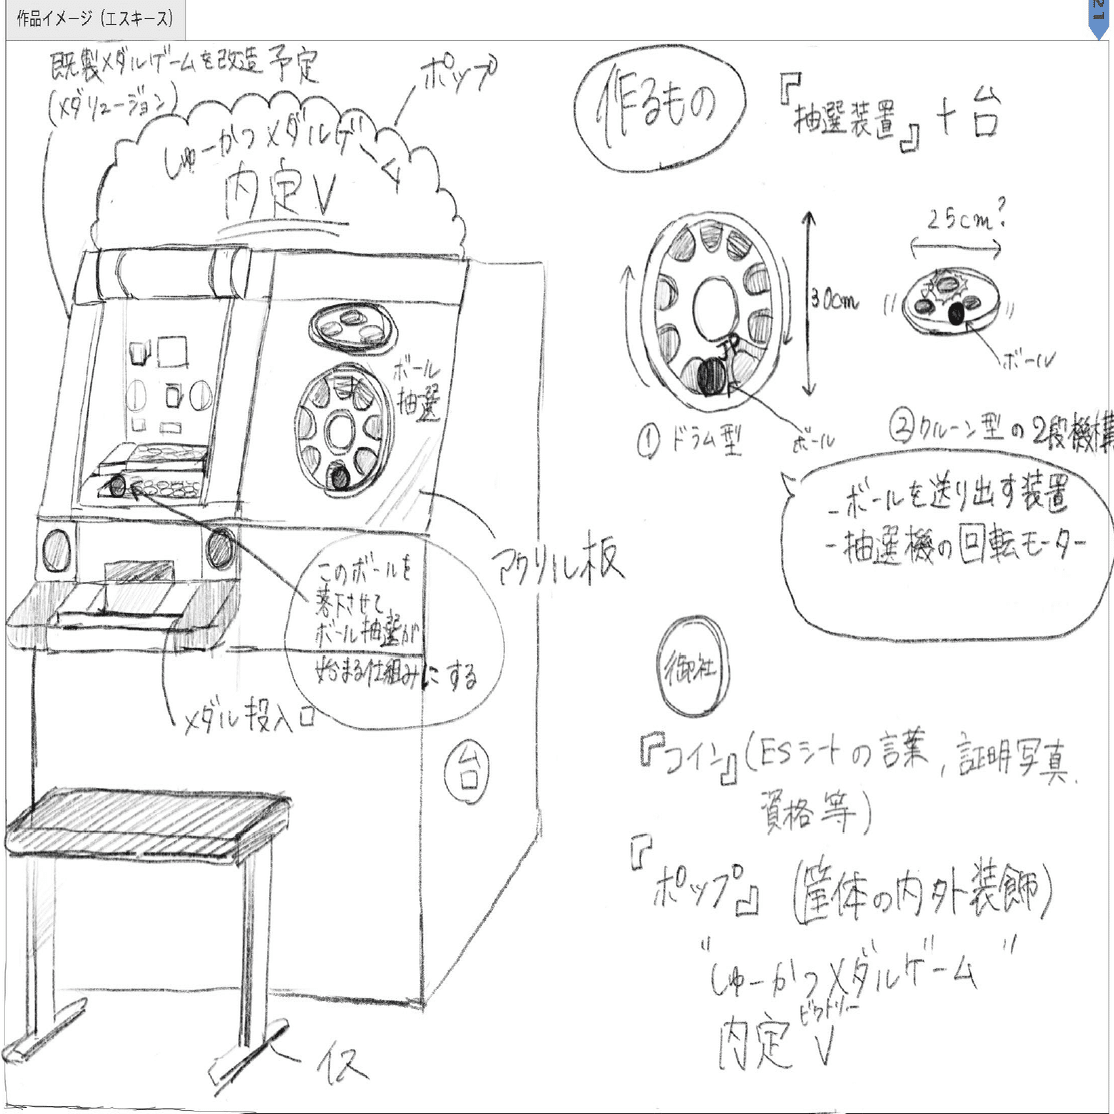 作品イメージ（エスキース）
既製メダルゲームを改造予定
(メダリュージョン)
ポップ
しゅーかつメダルゲーム
内定V
ボール
抽選
アクリル板
このボールを
落下させて
ボール抽選が
始まる仕組みにする
メダル投入口
台
イス
作るもの
『抽選装置』+台
30cm
25cm?
ボール
ボール
① ドラム型
② クルーン型の2段機構
-ボールを送り出す装置
-抽選機の回転モーター
御社
『コイン』(ESシートの言葉,証明写真,
資格等)
『ポップ』(筐体の内外装飾)
"しゅーかつメダルゲーム"
ビクトリー
内定V